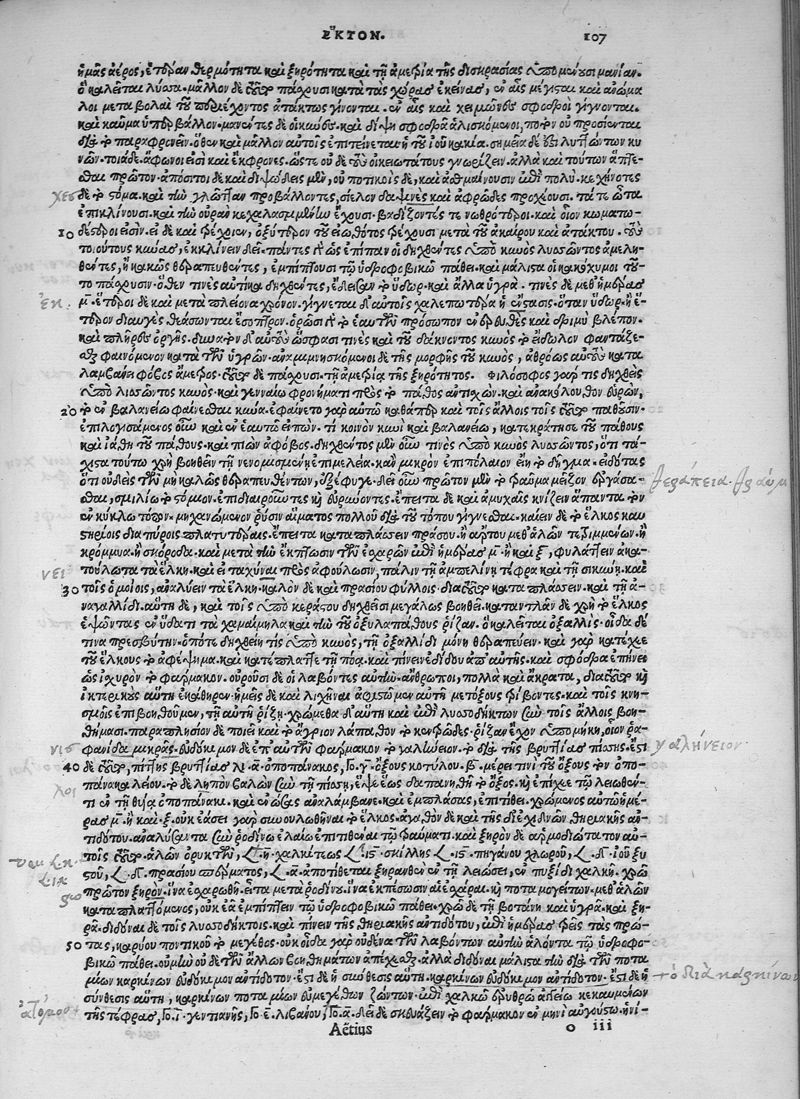 ΕΚΤΟΝ. 107
ἡμᾶς ἀέρος, ἑτέραν θερμότητα καὶ ξηρότητα καὶ τῇ ἀμετρίᾳ τῆς δυσκρασίας ὑπομένουσι μανίαν.
ὃ καλεῖται λύσσα. μᾶλλον δὲ πάσχουσι κατὰ τὰς χώρας ἐκείνας, ἐν αἷς μέγισται καὶ ἀνώμα
λοι μεταβολαὶ τοῦ περιέχοντος ἀτάκτως γίνονται. ἐν αἷς καὶ χειμῶνες σφοδροὶ γίγνονται.
καὶ καῦμα ὑπερβάλλον. μανέντες δὲ οἱ κύνες καὶ δίψῃ σφοδρᾷ ἁλισκόμενοι, ποτὸν οὐ προσίενται
διὰ τὸ παραφρονεῖν. ὅθεν καὶ μᾶλλον αὐτοῖς ἐπιτείνεται ἡ τοῦ ἰοῦ κακία. σημεῖα δὲ τῶν λυττώντων κυ
νῶν. τοιάδε. ἄφωνοί εἰσι καὶ ἔκφρονες. ὥστε οὐδὲ τοὺς οἰκειοτάτους γνωρίζειν. ἀλλὰ καὶ τούτων ἅπτε-
σθαι πρῶτον. ἀπόσιτοι δὲ καὶ διψώδεις μὲν, οὐ ποτικοὶ δὲ, καὶ ἀσθμαίνουσιν ἐπὶ πολύ. κεχηνότες
δὲ τὸ στόμα. καὶ τὴν γλῶτταν προβάλλοντες, σίελον δαψιλὲς καὶ ἀφρῶδες προχέουσι. τά τε ὦτα
ἐπικλίνουσι. καὶ τὴν οὐρὰν κεχαλασμένην ἔχουσι. βαδίζοντές τε νωθρότεροι. καὶ οἷον κωματω-
10 δέστεροί εἰσιν. εἰ δὲ καὶ τρέχοιεν, ὀξύτερον τοῦ εἰωθότος τρέχουσι μετὰ τοῦ ἀκαίρου καὶ ἀτάκτου. τοὺς
τοιούτους κύνας, ἐκκλίνειν δεῖ. πάντες γὰρ ὡς ἐπίπαν οἱ δηχθέντες ὑπὸ κυνὸς λυσσῶντος ἀμελη-
θέντες, ἢ κακῶς θεραπευθέντες, ἐμπίπτουσι τῷ ὑδροφοβικῷ πάθει. καὶ μάλιστα οἱ κακόχυμοι τοῦ-
το πάσχουσιν. ὅθεν τινὲς αὐτίκα δηχθέντες, ἔδεισαν τὸ ὕδωρ. καὶ ἄλλα ὑγρά. τινὲς δὲ μεθ' ἡμέρας
μ. ἕτεροι δὲ καὶ μετὰ πλείονα χρόνον. γίγνεται δ' αὐτοῖς χαλεπωτέρα ἡ ἔνστασις. ὅταν ὕδωρ. ἢ ἕ-
τερον διαυγὲς θεάσωνται ἔσοπτρον. ὁρῶσι γὰρ τὸ ἑαυτῶν πρόσωπον ἐνερευθὲς καὶ δριμὺ βλέπον.
καὶ πλῆρες ὀργῆς. διὸ δ' αὐτοὺς ὥς φασί τινες καὶ τοῦ δάκνοντος κυνὸς τὸ εἴδωλον φαντάζε-
σθαι φαινόμενον κατὰ τῶν ὑγρῶν. ἀναμιμνησκόμενοι δὲ τῆς μορφῆς τοῦ κυνὸς, ἀθρόως αὐτοὺς κατα
λαμβάνει φόβος ἄμετρος. δὲ πάσχουσι τῇ ἀμετρίᾳ τῆς ξηρότητος. Φιλόσοφος γάρ τις δηχθεὶς
ὑπὸ λυσσῶντος κυνὸς. καὶ γενναίῳ φρονήματι πρὸς τὸ πάθος ἀντιχὼν. καὶ ἀνακόλουθον εὑρὼν,
20 τὸ ἐν βαλανείῳ φαίνεσθαι κύνα. ἐφαίνετο γὰρ αὐτῷ καθάπερ καὶ τοῖς ἄλλοις τοῖς παθοῦσιν.
ἐπιλογισάμενος οὖν καὶ ἐν ἑαυτῷ εἰπών. τί κοινὸν κυνὶ καὶ βαλανείῳ, κατεκράτησε τοῦ πάθους
καὶ ἰάθη τοῦ πάθους. καὶ πιὼν ἀφόβως. δηχθέντος μὲν οὖν τινὸς ὑπὸ κυνὸς λυσσῶντος, ὅτι τά-
χιστα τούτῳ χρὴ βοηθεῖν τῇ νενομισμένῃ ἐπιμελείᾳ. κἂν μικρὸν ἐπιπόλαιον εἴη τὸ δῆγμα. εἰδότας
ὅτι οὐδεὶς τῶν μὴ καλῶς θεραπευθέντων, ἐξέφυγε. δεῖ οὖν πρῶτον μὲν τὸ τραῦμα μεῖζον ἐργάσα-
σθαι, σμιλίῳ τὸ στόμιον ἐπιδιαιροῦντες καὶ εὐρύνοντες. ἔπειτα δὲ καὶ ἀμυχαῖς κνίζειν ἅπαντα τὸν
ἐν κύκλῳ τόπον. μηχανώμενον ῥύσιν αἵματος πολλοῦ διὰ τοῦ τόπου γίγνεσθαι. καίειν δὲ τὸ ἕλκος καυ
τηρίοις διαπύροις πλατυτέροις. ἔπειτα καταπλάσσειν πράσου. ἢ ἄρτου μεθ' ἁλῶν τετριμμένων. ἢ
κρόμμυα. ἢ σκόροδα. καὶ μετὰ τὴν ἔκπτωσιν τῶν ἐσχαρῶν ἐπὶ ἡμέρας μ. ἢ καὶ ξ, φυλάττειν ἀκα-
τούλωτα τὰ ἕλκη. καὶ εἰ ταχύναι πρὸς ἀφούλωσιν, πάλιν τῇ ἀμπελίνῃ τέφρᾳ καὶ τῇ σικύῃ. καὶ
30 τοῖς ὁμοίοις, ἀναλύειν τὰ ἕλκη. καλὸν δὲ καὶ πρασίου φύλλοις καταπλάσσειν. καὶ τῇ ἀ-
ναγαλλίδι. αὕτη δὲ, καὶ τοῖς ὑπὸ κεράστου δηχθεῖσι μεγάλως βοηθεῖ. καταντλᾶν δὲ χρὴ τὸ ἕλκος
ἕψοντας ἐν ὕδατι τὰ χαμαίμηλα καὶ τὴν τοῦ ὀξυλαπάθους ῥίζαν. ὃ καλεῖται ὀξαλλίς. οἶδα δέ
τινα πρεσβύτην. ὁπότε δηχθείη τις ὑπὸ κυνὸς, τῇ ὀξαλλίδι μόνῃ θεραπεύειν. καὶ γὰρ κατέχεε
τοῦ ἕλκους τὸ ἀφέψημα. καὶ κατέπλαττε τῇ πόᾳ. καὶ πίνειν ἐδίδου ἀπ' αὐτῆς. καὶ σφόδρα ἐπῄνει
ὡς ἰσχυρὸν τὸ φάρμακον. οὐροῦσι δὲ οἱ λαβόντες αὐτὸ ἄνθρωποι, πολλὰ καὶ ἄκρατα,
ἰκτερικοὺς αὕτη ἐκκαθαίρει. ἡμεῖς δὲ καὶ λιχῆνας ἀφιστῶμεν αὐτῇ μετ' ὄξους τρίβοντες. καὶ τοῖς κνη-
σμοῖς ἐπιβοηθοῦμεν, τῇ αὐτῇ ῥίζῃ. χρώμεθα δ' αὐτῇ καὶ ἐπὶ λυσσοδήκτων σὺν τοῖς ἄλλοις βοη-
θήμασι. παραπλήσιον δὲ ποιεῖ καὶ τὸ ἄγριον λάπαθον τὸ κηπῶδες. ῥίζαν ἔχον ὑπομήκη, οἷον ῥα-
φανῖδα μικράν. εὐδόκιμον δὲ ἐπ' αὐτῶν φάρμακον τὸ γαλήνειον. τὸ διὰ τῆς βρυτίας πίσσης. ἔστι
40 δὲ , πίττης βρυτίας λι. α. ὀποπάνακος, Γο. γ. ὄξους κοτύλου. β. μέρει τινὶ τοῦ ὄξους τὸν ὀπο-
πάνακα λείου. τὸ δὲ λοιπὸν βαλὼν σὺν τῇ πίσσῃ, ἕψε ἕως δαπανηθῇ τὸ ὄξος. καὶ ἐπίχει τῷ λειωθέν-
τι ἐν τῇ θυίᾳ ὀποπάνακι. καὶ ἑνώσας ἀναλάμβανε. καὶ ἐμπλάσας, ἐπιτίθει. χρώμενος αὐτῷ ἡμέ-
ρας μ. ἢ καὶ ξ. οὐκ ἐάσει γὰρ συνουλωθῆναι τὸ ἕλκος. ἀγαθὸν δὲ καὶ τῆς δι' ἐχιδνῶν θηριακῆς ἀν-
τιδότου. ἀναλύσαντα σὺν ῥοδίνῳ ἐλαίῳ ἐπιτιθέναι τῷ τραύματι. καὶ ξηρὸν δὲ ἁρμοδιώτατον αὐ-
τοῖς . ἁλῶν ὀρυκτῶν, η. χαλκίτεως ιϛ. σκίλλης ιϛ. πηγάνου χλωροῦ, δ. ἰοῦ ξυ
στοῦ, δ. πρασίου σπέρματος, α. ἀποτίθεται ξηρανθὲν τῇ λειώσει, ἐν πυξίδι χαλκῇ. χρῶ
πρῶτον ξηρὸν. ἵνα ἐσχαρωθῇ. εἶτα μετὰ ῥοδίνου. ἵνα ἐκπέσωσιν αἱ ἐσχάραι. καὶ ποταμογείτων. μεθ' ἁλῶν
καταπλαττόμενος, οὐκ ἐᾷ ἐμπίπτειν τῷ ὑδροφοβικῷ πάθει. χρῶ δὲ τῇ βοτάνῃ καὶ ὑγρᾷ. καὶ ξη-
ρᾷ. διδόναι δὲ τοῖς λυσσοδήκτοις. καὶ πίνειν τῆς θηριακῆς ἀντιδότου, ἐπὶ ἡμέρας τρεῖς τὰς πρώ-
50 τας, καρύου ποντικοῦ τὸ μέγεθος. οὐκ οἶδα γὰρ οὐδένα τῶν λαβόντων αὐτὴν ἁλόντα τῷ ὑδροφο-
βικῷ πάθει. οὐ μὴν οὐδὲ τῶν ἄλλων βοηθημάτων ἀπέχεσθαι. ἀλλὰ διδόναι μάλιστα τὴν διὰ τῶν ποτα
μίων καρκίνων εὐδόκιμον ἀντίδοτον. ἔστι δὲ ἡ σύνθεσις αὕτη. καρκίνων εὐδόκιμον ἀντίδοτον. ἔστι δὲ ἡ
σύνθεσις αὕτη, καρκίνων ποταμίων εὐμεγέθων ζώντων. ἐπὶ χαλκῷ ἐρυθρῷ ἀγγείῳ κεκαυμένων
τῆς τέφρας, Γο. ι. γεντιανῆς, Γο. ε. λιβάνου, Γο. α. δεῖ δὲ σκευάζειν τὸ φάρμακον ἐν μηνὶ αὐγούστῳ. ἡνί-
Aëtius o iii
χες
ἐκ.
θεραπεία
νει
νις
γαλήνειον
λοι
τὸ διὰ καρκίνων